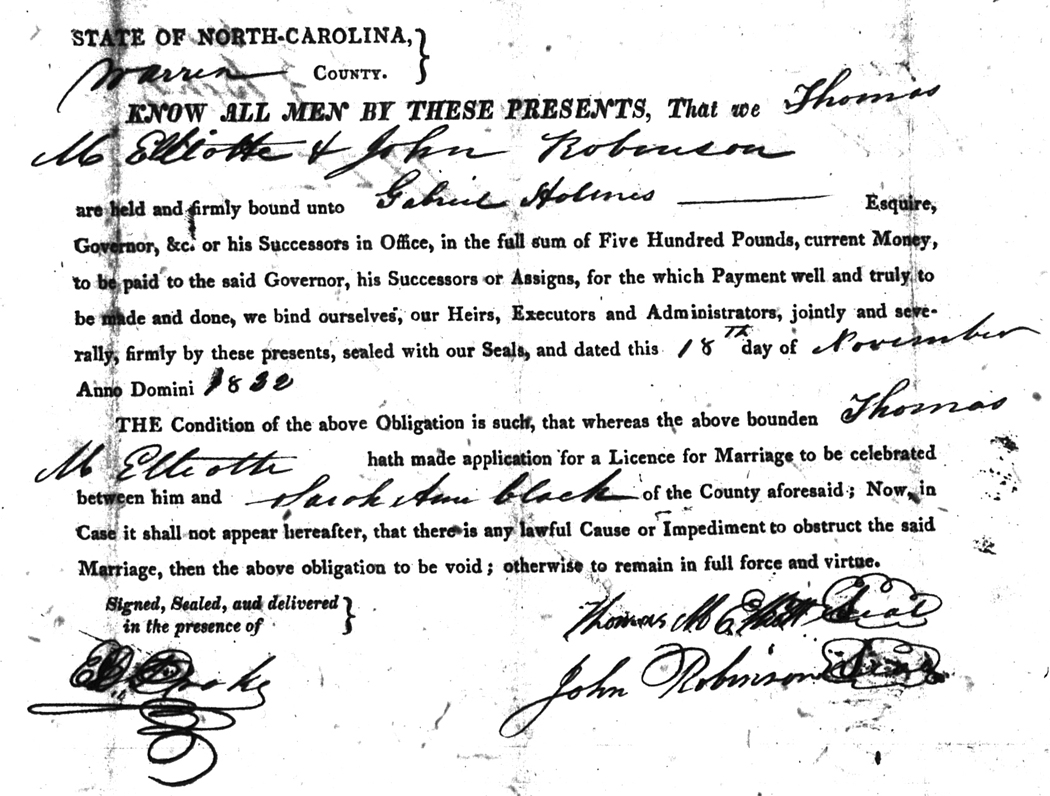 STATE OF NORTH-CAROLINA,}
Warren COUNTY.
KNOW ALL MEN BY THESE PRESENTS, That we Thomas
M Elliotte & John Robinson
are held and firmly bound unto Gabriel Holmes Esquire,
Governor, &c. or his Successors in Office, in the full sum of Five Hundred Pounds, current Money,
to be paid to the said Governor, his Successors or Assigns, for the which Payment well and truly to
be made and done, we bind ourselves, our Heirs, Executors and Administrators, jointly and seve-
rally, firmly by these presents, sealed with our Seals, and dated this 18th day of November
Anno Domini
THE Condition of the above Obligation is such, that whereas the above bounden Thomas
M Elliotte hath made application for a Licence for Marriage to be celebrated
between him and Sarah Ann Black of the County aforesaid; Now, in
Case it shall not appear hereafter, that there is any lawful Cause or Impediment to obstruct the said
Marriage, then the above obligation to be void; otherwise to remain in full force and virtue.
Signed, Sealed, and delivered}
in the presence of
Thomas M Elliott Seal
John Robinson Seal